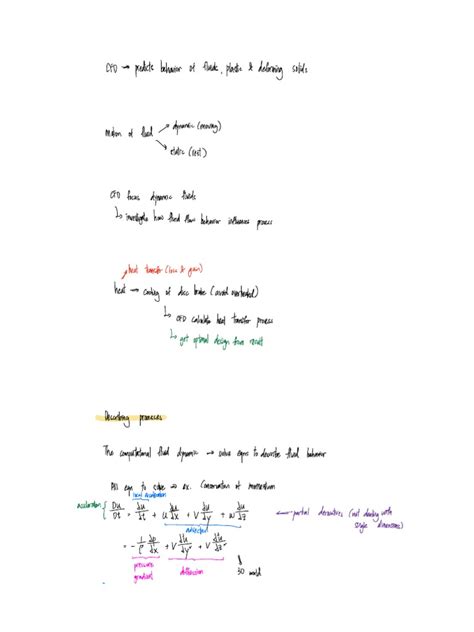 CFD → predicts behavior of fluids, plastic & deforming solids
motion of fluid
dynamic (moving)
static (rest)
CFD focus dynamic fluids
↳ investigate how fluid flow behavior influences process
heat transfer (loss & gain)
heat → cooling of disc brake (avoid overheated)
↳ CFD calculate heat transfer process
↳ get optimal design from result
Describing processes
The computational fluid dynamic → solve eqns to describe fluid behavior
eqn to solve → ex. Conservation of momentum
local acceleration
acceleration { Du/Dt = du/dt + u du/dx + v du/dy + w du/dz ← partial derivatives (not dealing with single dimensions)
advection
= - 1/ρ dp/dx + v d²u/dy² + v d²u/dz²
pressure gradient
diffusion
3D world